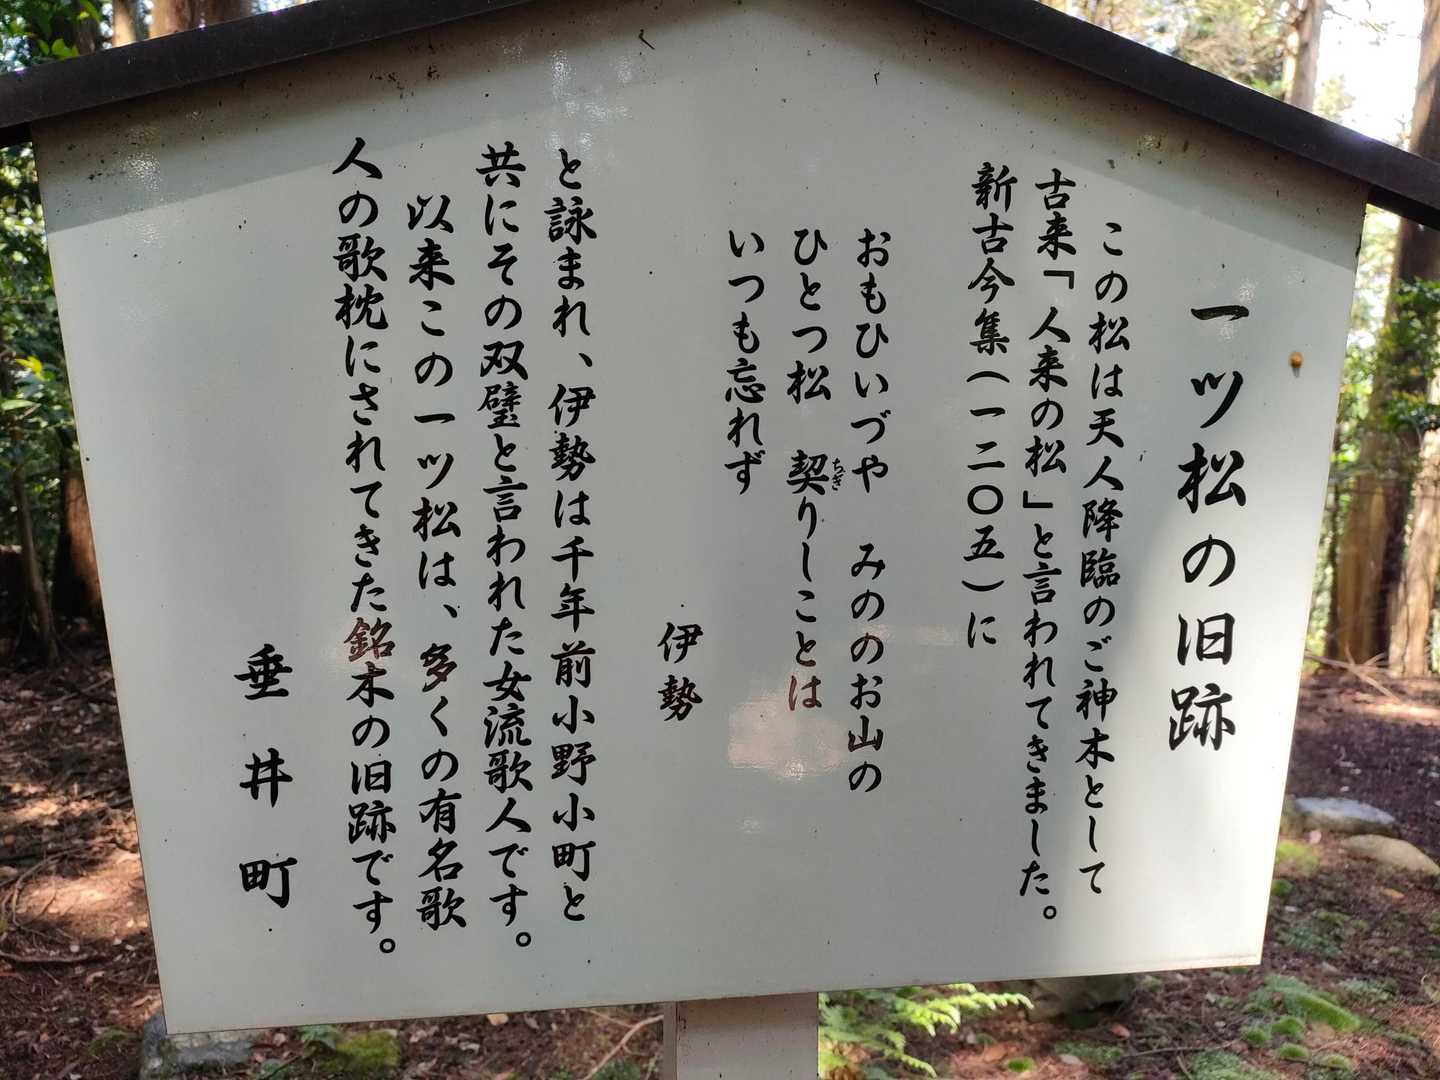 一ツ松の旧跡
この松は天人降臨のご神木として
古来「人来の松」と言われてきました。
新古今集(一二〇五)に
おもひいづや　みののお山の
ひとつ松　契りしことは
ちぎ
いつも忘れず
伊勢
と詠まれ、伊勢は千年前小野小町と
共にその双璧と言われた女流歌人です。
以来この一ツ松は、多くの有名歌
人の歌枕にされてきた銘木の旧跡です。
垂井町